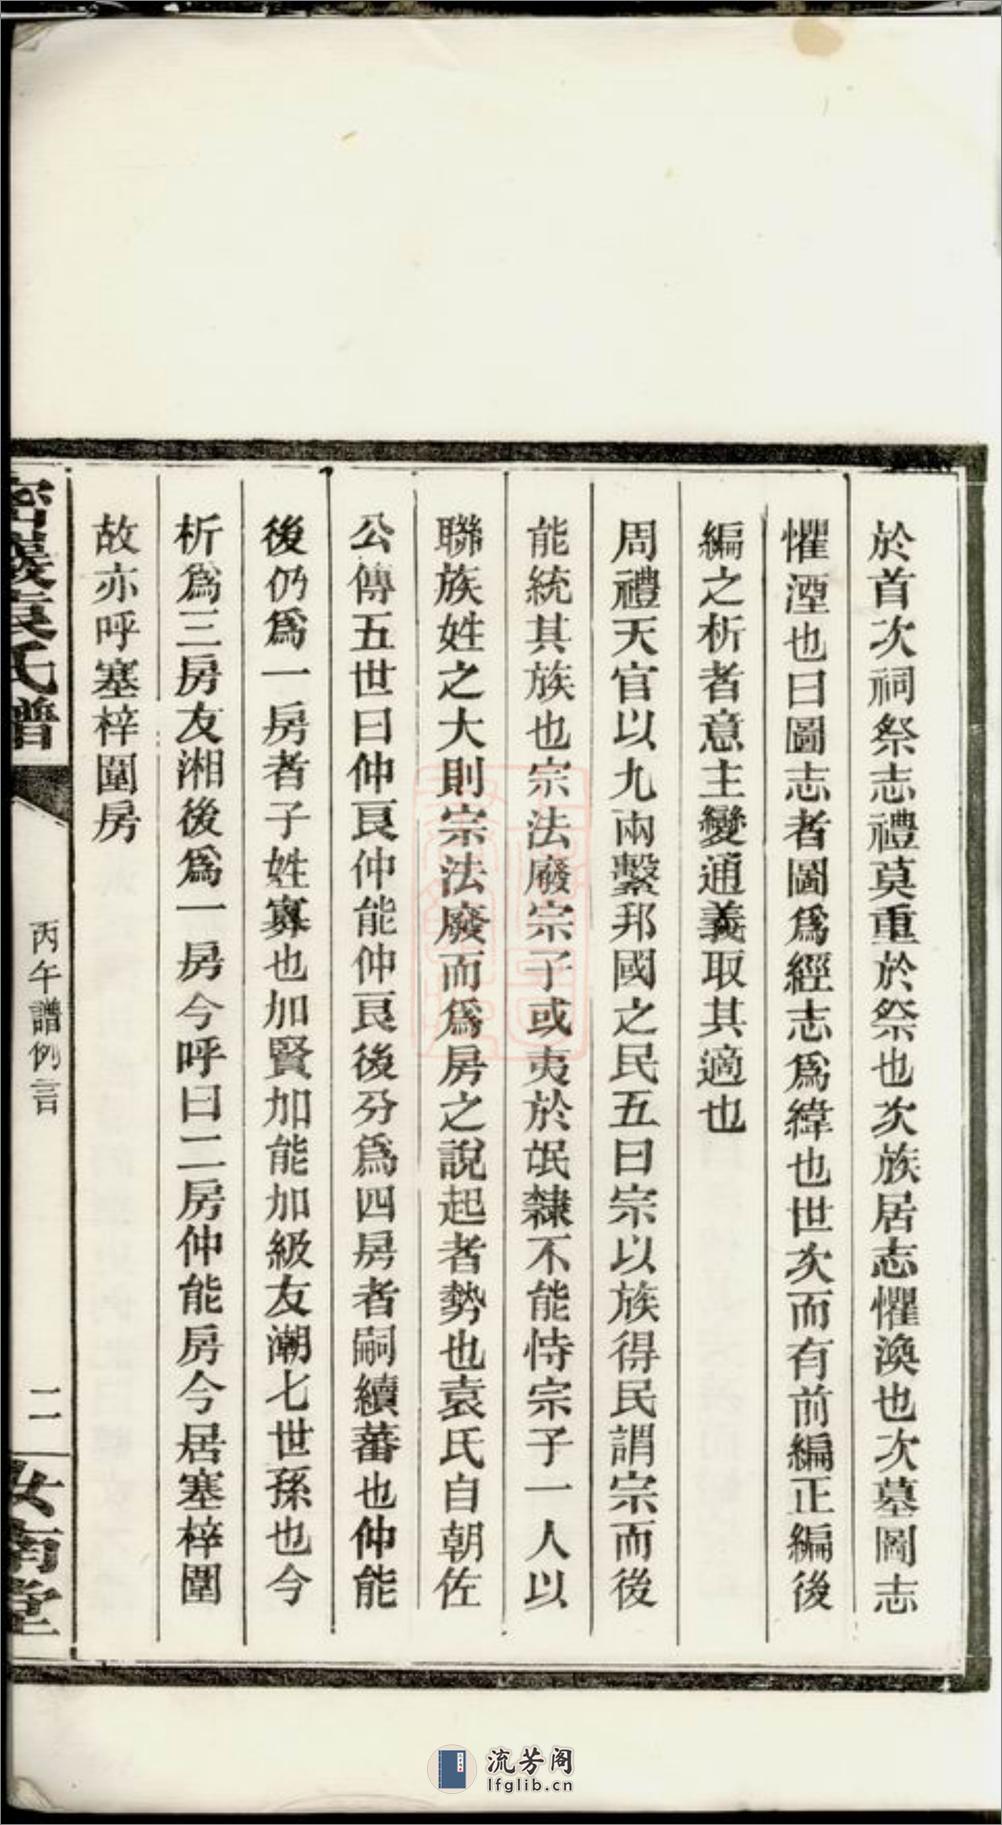 於首次祠祭志禮莫重於祭也次族居志懼渙也次墓圖志
懼湮也曰圖志者圖爲經志爲緯也世次而有前編正編後
編之析者意主變通義取其適也
周禮天官以九兩繫邦國之民五曰宗以族得民謂宗而後
能統其族也宗法廢宗子或夷於氓隸不能恃宗子一人以
聯族姓之大則宗法廢而爲房之說起者勢也袁氏自朝佐
公傳五世曰仲良仲能仲良後分爲四房者嗣續蕃也仲能
後仍爲一房者子姓寡也加賢加能加級友潮七世孫也今
析爲三房友湘後爲一房今呼曰二房仲能房今居塞梓圍
故亦呼塞梓圍房
袁氏譜
丙午譜例言
二
汝南堂
流芳阁
lfglib.cn